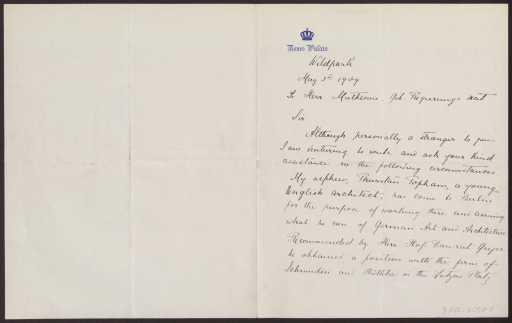 Neues Palais
Wildpark
May 3rd 1909
To Herr Muthesius, Geh. Regierungs Rat
Sir
Although personally a stranger to you
I am venturing to write and ask your kind
assistance in the following circumstances
My nephew, Thurstan Topham, a young
English architect, has come to Berlin
for the purpose of working there and learning
what he can of German Art and Architecture
Recommended by Herr Hof Baurat Geyer
he obtained a position with the firm of
und on the Lützow Platz